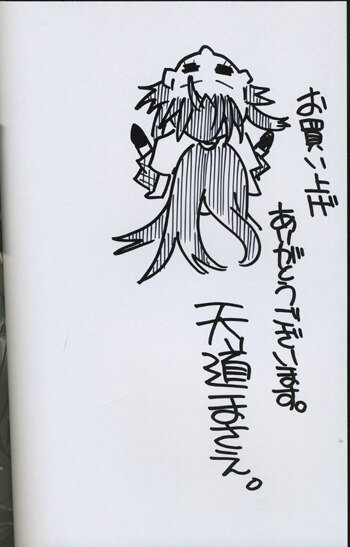 お買い上げ
ありがとうございます。
天道まさえ。